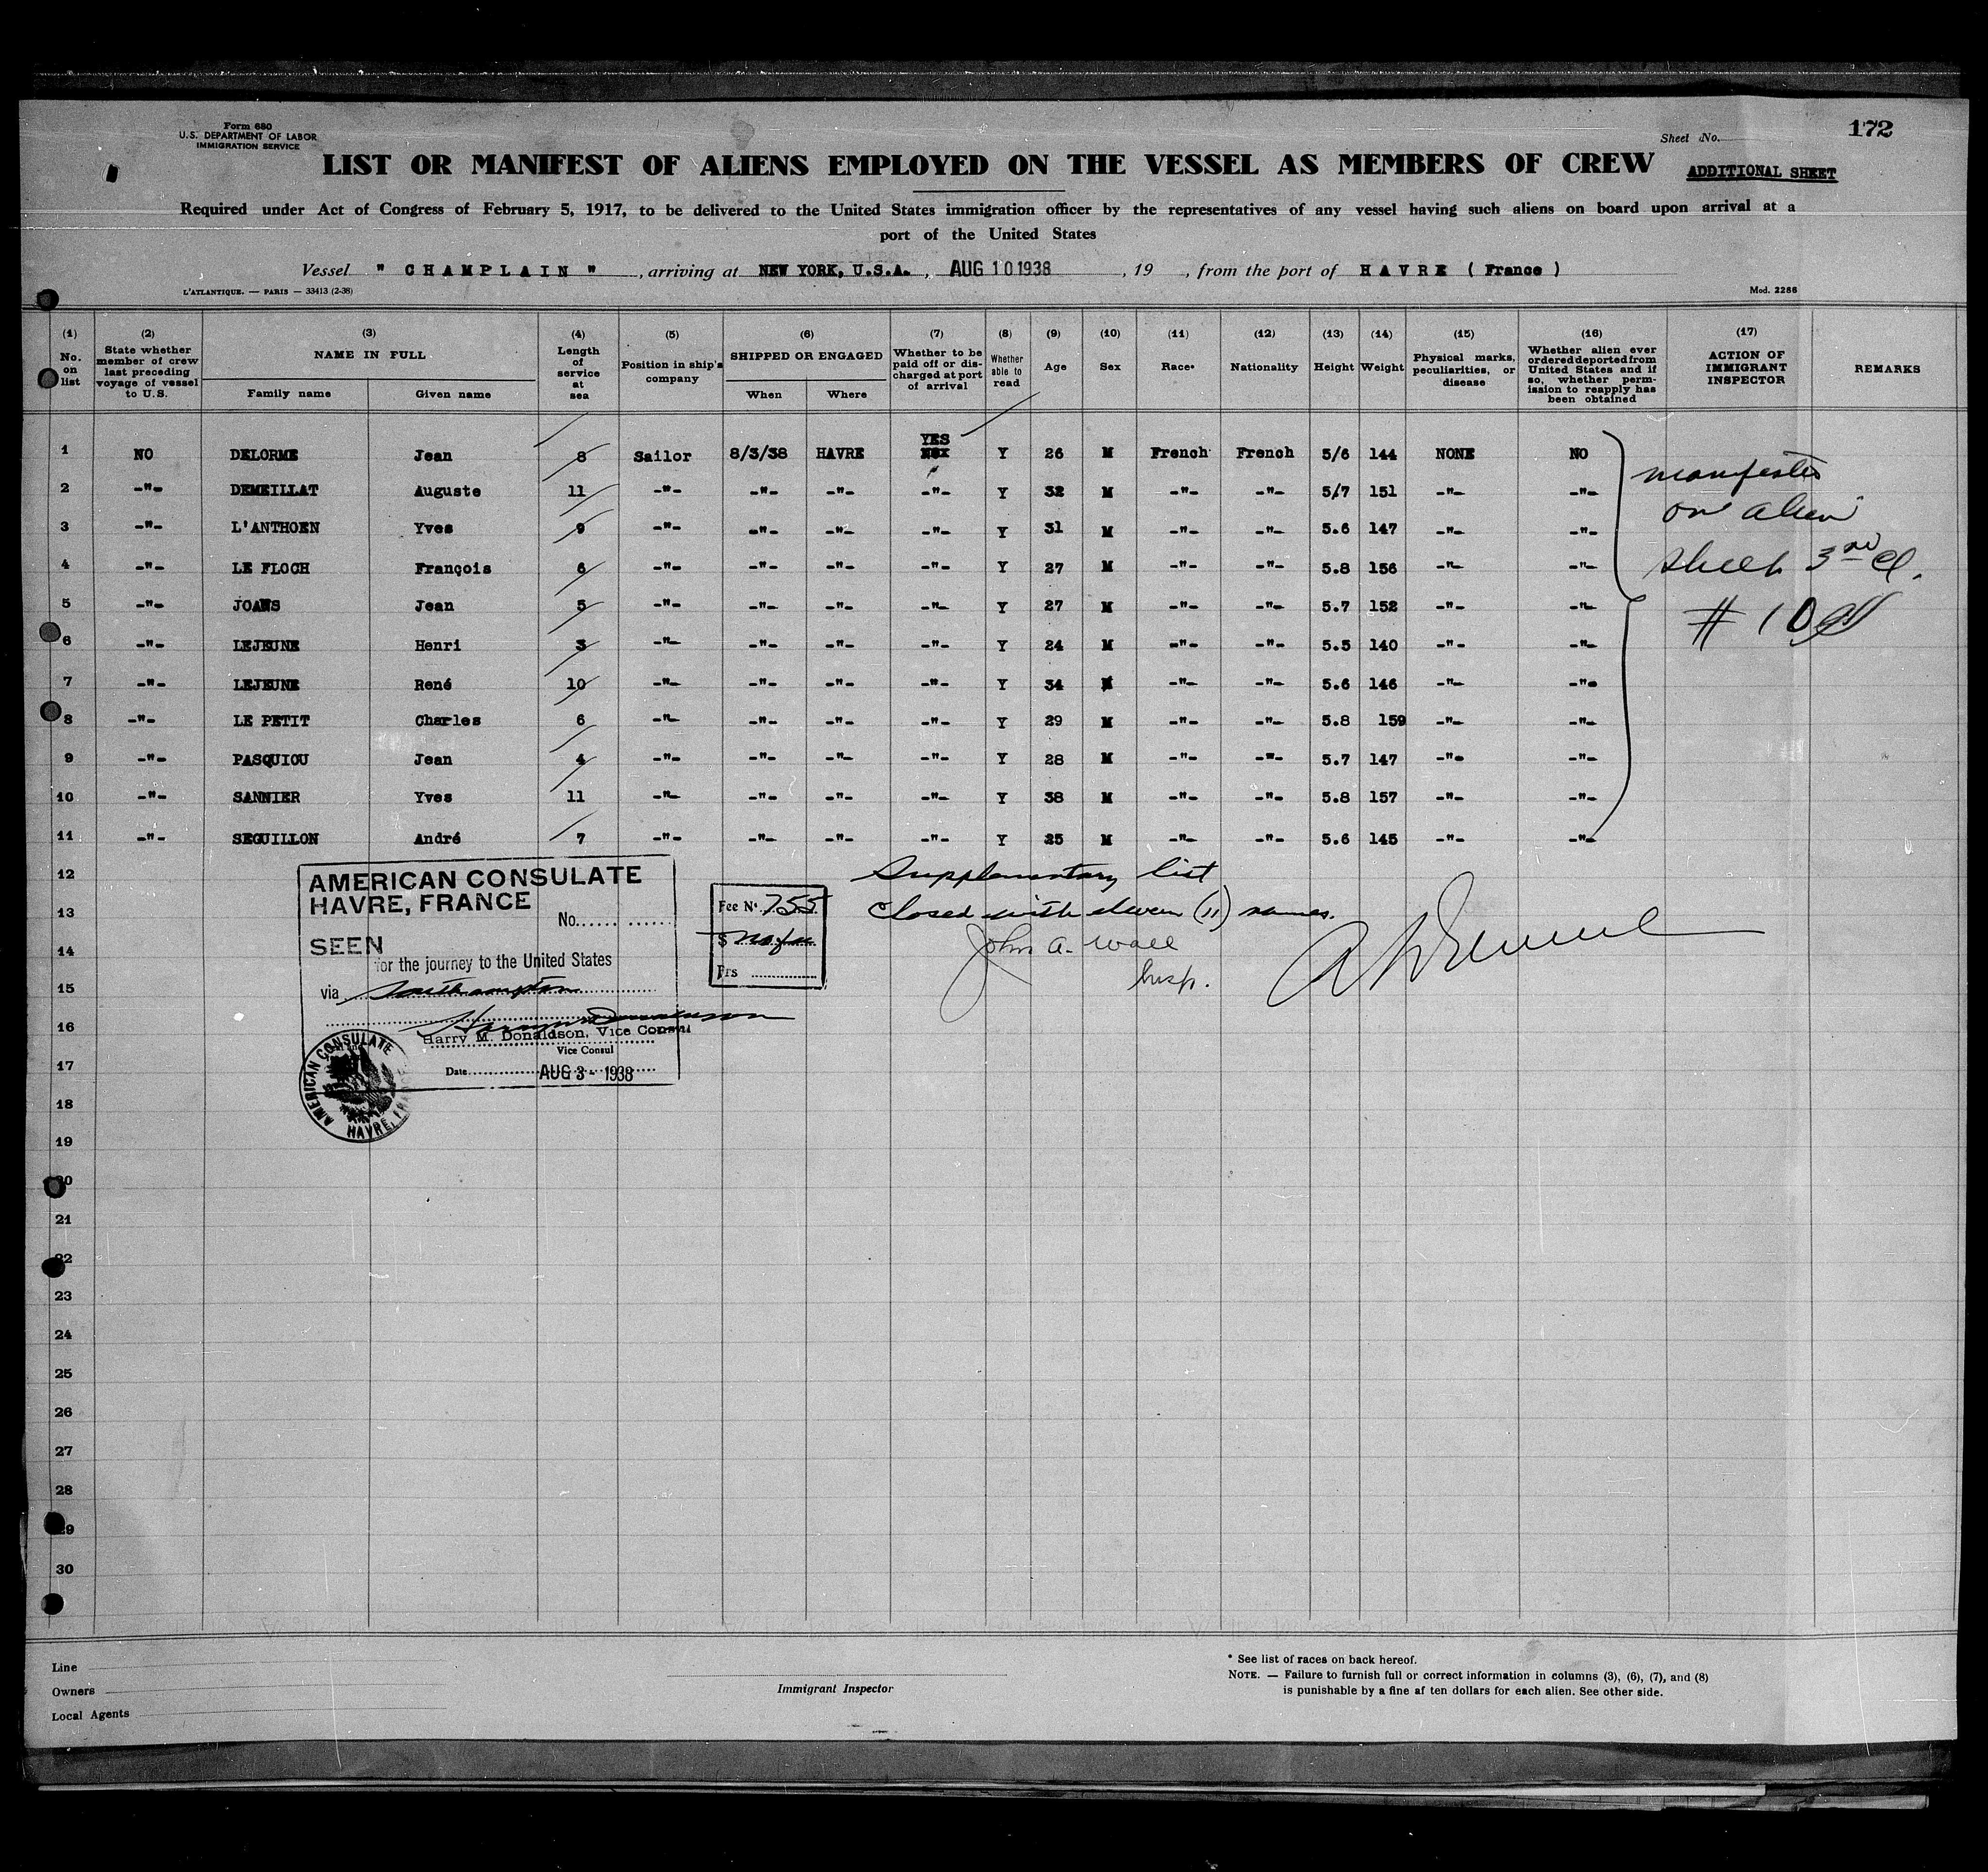 Form 680
U.S. DEPARTMENT OF LABOR
IMMIGRATION SERVICE
Sheet No.
172
LIST OR MANIFEST OF ALIENS EMPLOYED ON THE VESSEL AS MEMBERS OF CREW
ADDITIONAL SHEET
Required under Act of Congress of February 5, 1917, to be delivered to the United States immigration officer by the representatives of any vessel having such aliens on board upon arrival at a
port of the United States
Vessel " CHAMPLAIN " , arriving at NEW YORK, U.S.A. , AUG 10 1938 , 19 , from the port of HAVRE ( France )
L'ATLANTIQUE. — PARIS — 33413 (2-38)
Mod. 2286
(1) (2) (3) (4) (5) (6) (7) (8) (9) (10) (11) (12) (13) (14) (15) (16) (17)
No. on list
State whether member of crew last preceding voyage of vessel to U.S.
NAME IN FULL
Family name
Given name
Length of service at sea
Position in ship's company
SHIPPED OR ENGAGED
When
Where
Whether to be paid off or discharged at port of arrival
Whether able to read
Age
Sex
Race*
Nationality
Height
Weight
Physical marks, peculiarities, or disease
Whether alien ever ordered deported from United States and if so, whether permission to reapply has been obtained
ACTION OF IMMIGRANT INSPECTOR
REMARKS
YES
1 NO DELORME Jean 8 Sailor 8/3/38 HAVRE Y 26 M French French 5/6 144 NONE NO
2 -"- DEMEILLAT Auguste 11 -"- -"- -"- -"- Y 32 M -"- -"- 5/7 151 -"- -"-
3 -"- L'ANTHOEN Yves 9 -"- -"- -"- -"- Y 31 M -"- -"- 5.6 147 -"- -"-
4 -"- LE FLOCH François 6 -"- -"- -"- -"- Y 27 M -"- -"- 5.8 156 -"- -"-
5 -"- JOANS Jean 5 -"- -"- -"- -"- Y 27 M -"- -"- 5.7 152 -"- -"-
6 -"- LEJEUNE Henri 3 -"- -"- -"- -"- Y 24 M -"- -"- 5.5 140 -"- -"-
7 -"- LEJEUNE René 10 -"- -"- -"- -"- Y 34 M -"- -"- 5.6 146 -"- -"-
8 -"- LE PETIT Charles 6 -"- -"- -"- -"- Y 29 M -"- -"- 5.8 159 -"- -"-
9 -"- PASQUIOU Jean 4 -"- -"- -"- -"- Y 28 M -"- -"- 5.7 147 -"- -"-
10 -"- SANNIER Yves 11 -"- -"- -"- -"- Y 38 M -"- -"- 5.8 157 -"- -"-
11 -"- SEGUILLON André 7 -"- -"- -"- -"- Y 25 M -"- -"- 5.6 145 -"- -"-
manifested
on alien
sheet 3rd Cl.
# 10
12
13
14
15
16
17
18
19
20
21
22
23
24
25
26
27
28
29
30
AMERICAN CONSULATE
HAVRE, FRANCE
No.
SEEN
for the journey to the United States
via Southampton
Harry M. Donaldson, Vice Consul
Vice Consul
Date AUG 3 - 1938
AMERICAN CONSULATE
HAVRE, FRANCE
Fee No. 755
$ no fee
Frs
Supplementary list
closed with eleven (11) names.
John A. Wall
Insp.
Line
Owners
Local Agents
Immigrant Inspector
* See list of races on back hereof.
NOTE. — Failure to furnish full or correct information in columns (3), (6), (7), and (8)
is punishable by a fine af ten dollars for each alien. See other side.